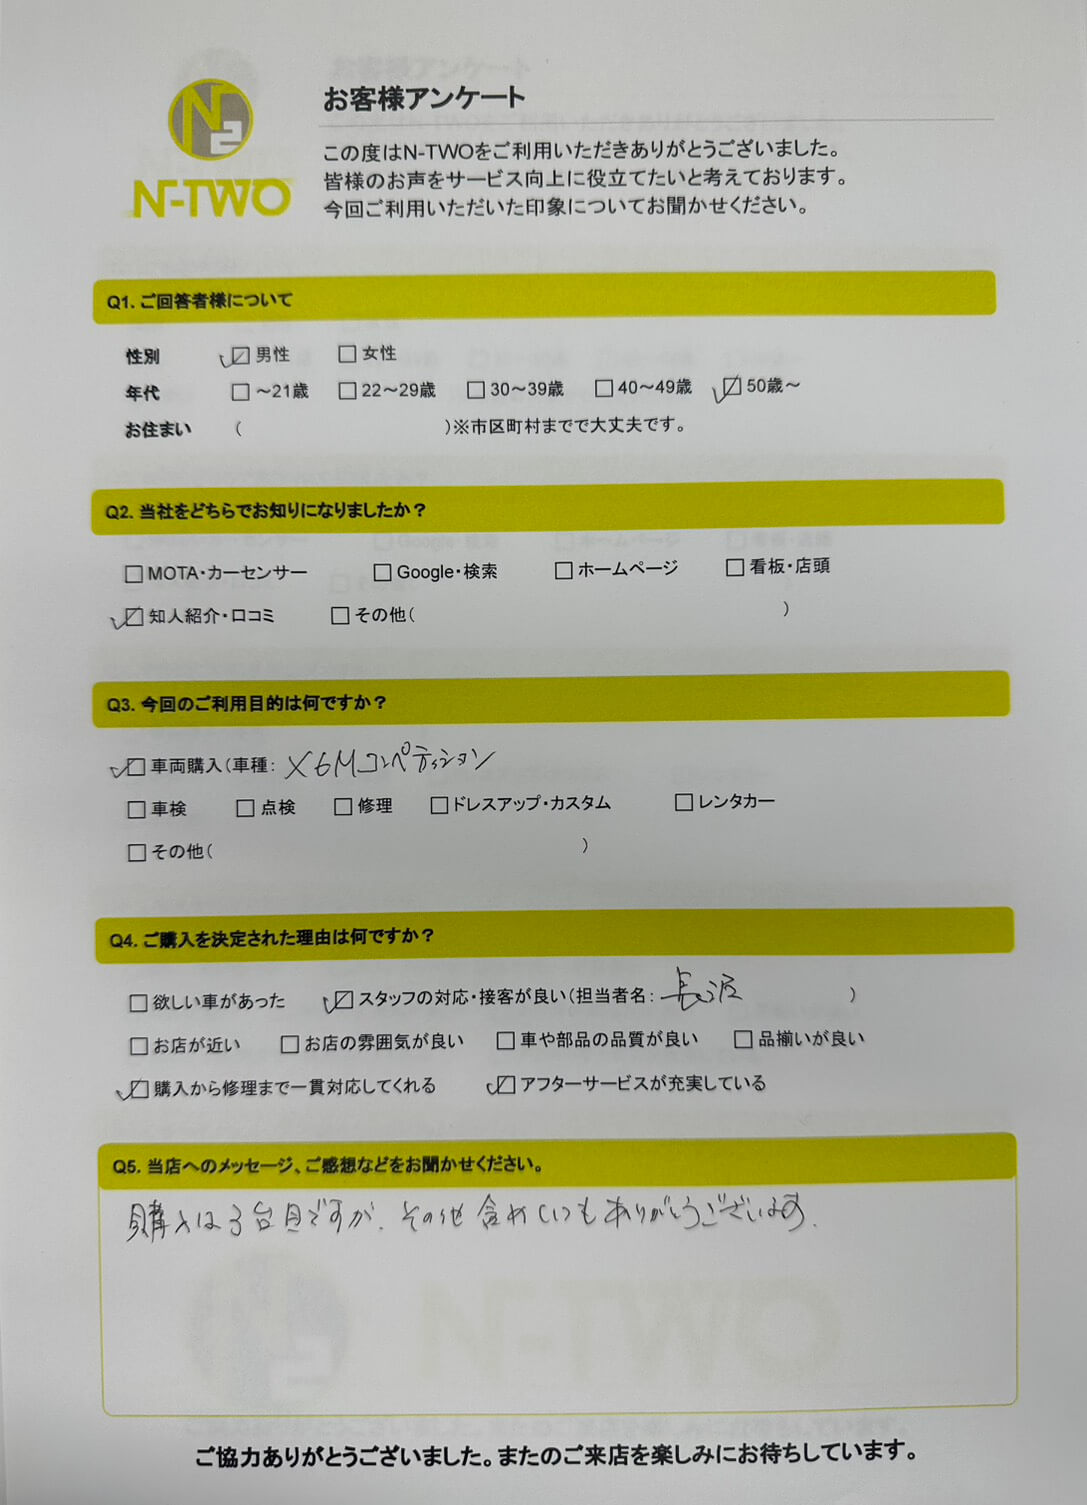 N2
N-TWO
お客様アンケート
この度はN-TWOをご利用いただきありがとうございました。
皆様のお声をサービス向上に役立てたいと考えております。
今回ご利用いただいた印象についてお聞かせください。
Q1. ご回答者様について
性別 ☑男性 □女性
年代 □～21歳 □22～29歳 □30～39歳 □40～49歳 ☑50歳～
お住まい ( )※市区町村までで大丈夫です。
Q2. 当社をどちらでお知りになりましたか？
□MOTA・カーセンサー □Google・検索 □ホームページ □看板・店頭
☑知人紹介・口コミ □その他( )
Q3. 今回のご利用目的は何ですか？
☑車両購入(車種: X6Mコンペティション
□車検 □点検 □修理 □ドレスアップ・カスタム □レンタカー
□その他( )
Q4. ご購入を決定された理由は何ですか？
□欲しい車があった ☑スタッフの対応・接客が良い(担当者名: 長沼 )
□お店が近い □お店の雰囲気が良い □車や部品の品質が良い □品揃いが良い
☑購入から修理まで一貫対応してくれる ☑アフターサービスが充実している
Q5. 当店へのメッセージ、ご感想などをお聞かせください。
購入は3台目ですが、その他含めいつもありがとうございます.
ご協力ありがとうございました。またのご来店を楽しみにお待ちしています。